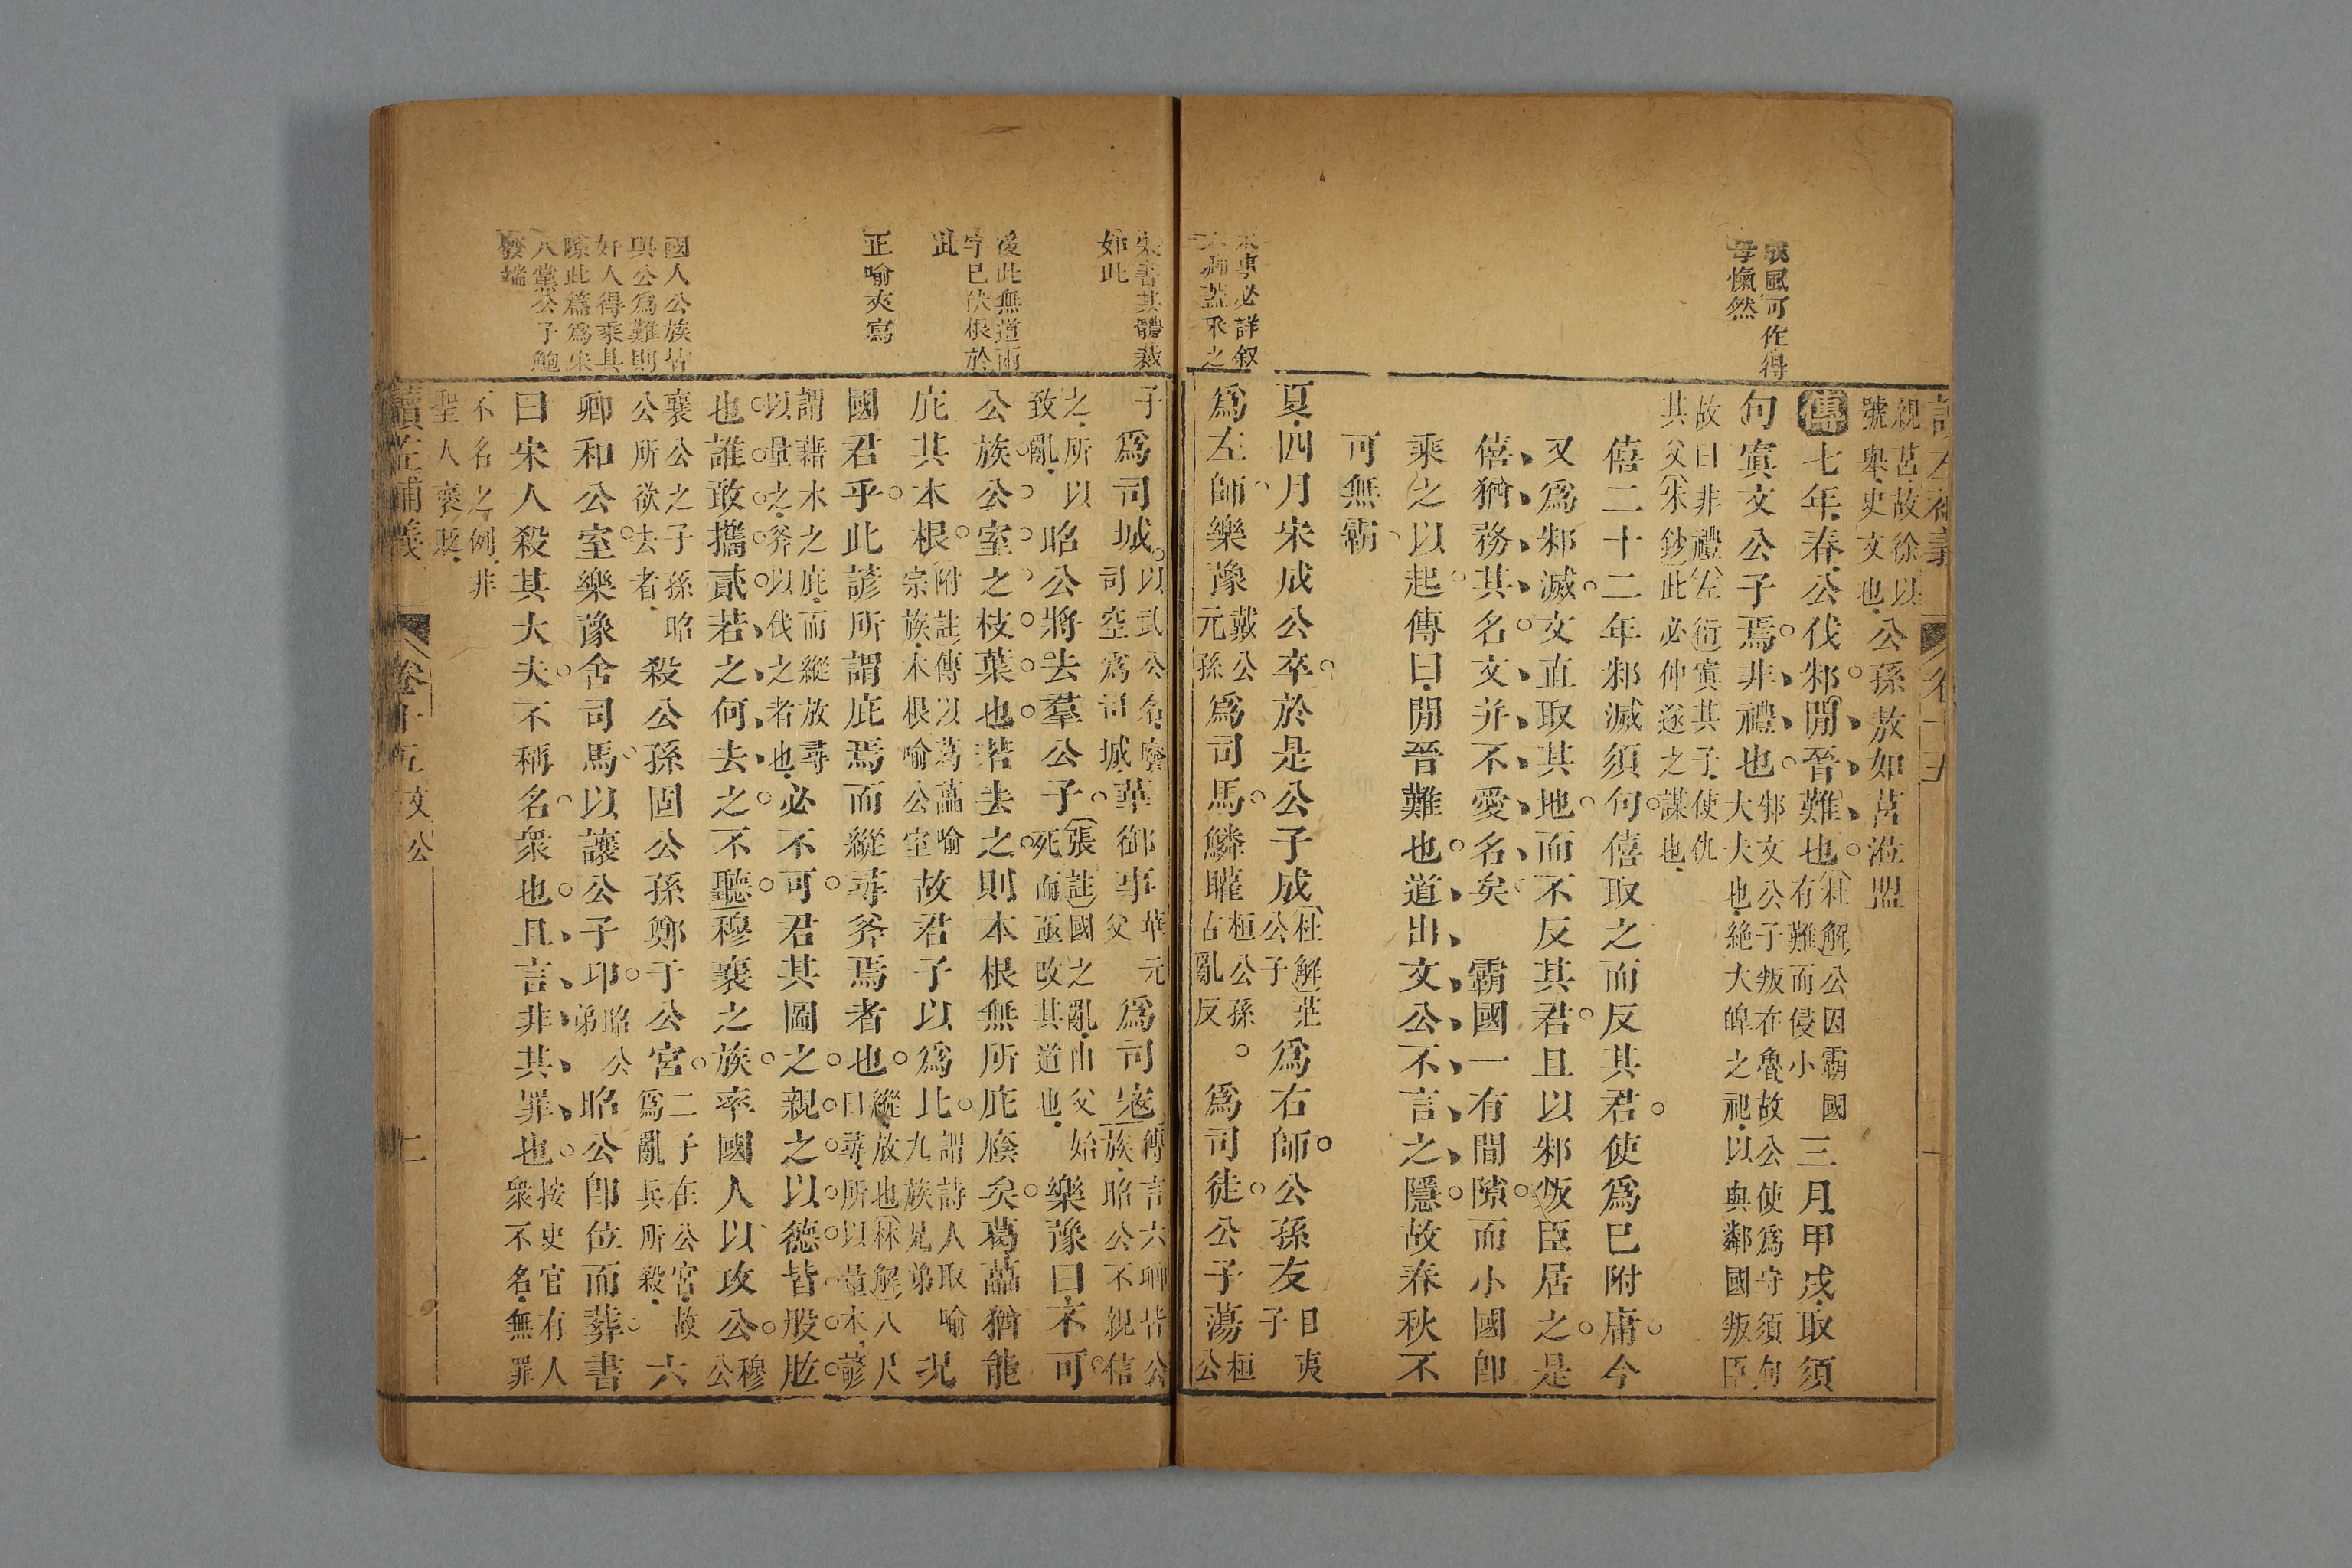 成風可作得
母愾然
宋事必詳叙
六卿蓋宋之
親莒故徐以
號舉史文也公孫敖如莒涖盟
傳七年春公伐邾閒晉難也杜解公因霸國有難而侵小三月甲戌取須
句寘文公子焉非禮也邾文公子叛在魯故公使爲守須句大夫也絶大皞之祀以與鄰國叛臣
故曰非禮左衍寘其子使仇
其父朱鈔此必仲遂之謀也
僖二十二年邾滅須句僖取之而反其君使爲巳附庸今
又爲邾滅文直取其地而不反其君且以邾叛臣居之是
僖猶務其名文并不愛名矣 霸國一有間隙而小國卽
乘之以起傳曰閒晉難也道出文公不言之隱故春秋不
可無霸
夏四月宋成公卒於是公子成杜解莊公子爲右師公孫友目夷子
爲左師樂豫戴公元孫爲司馬鱗矔桓公孫古亂反○爲司徒公子蕩桓公
史書其體裁
如此
後此無道兩
字已伏根於
此
正喻夾寫
國人公族皆
與公爲難則
好人得乘其
隙此篇爲宋
人黨公子鮑
發端
子爲司城以武公名廢司空爲司城華御事華元父爲司寇傳言六卿皆公族昭公不親信
之所以致亂昭公將去羣公子張註國之亂由父死而亟改其道也始樂豫曰不可
公族公室之枝葉也若去之則本根無所庇廕矣葛藟猶能
庇其本根附註傳以葛藟喻宗族本根喻公室故君子以爲比謂詩人取喻九族兄弟況
國君乎此諺所謂庇焉而縱尋斧焉者也縱放也林解八尺曰尋所以量木諺
謂藉木之庇而縱放尋
以量之斧以伐之者也必不可君其圖之親之以德皆股肱
也誰敢攜貳若之何去之不聽穆襄之族率國人以攻公穆公
襄公之子孫昭
公所欲去者殺公孫固公孫鄭于公宮二子在公宮故爲亂兵所殺六
卿和公室樂豫舍司馬以讓公子卬昭公弟昭公卽位而葬書
曰宋人殺其大夫不稱名衆也且言非其罪也按史官有人衆不名無罪
不名之例非
聖人褒貶
讀左補義 卷十五 文公 二